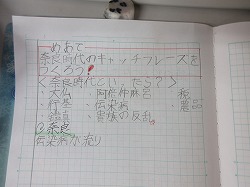 めあて
奈良時代のキャッチフレーズを
つくろう!
<奈良時代といったら?>
・大仏 ・阿倍仲麻呂 ・税
・行基 ・伝染病 ・農民
・鑑真 ・貴族の反乱
奈良
伝染病が流行